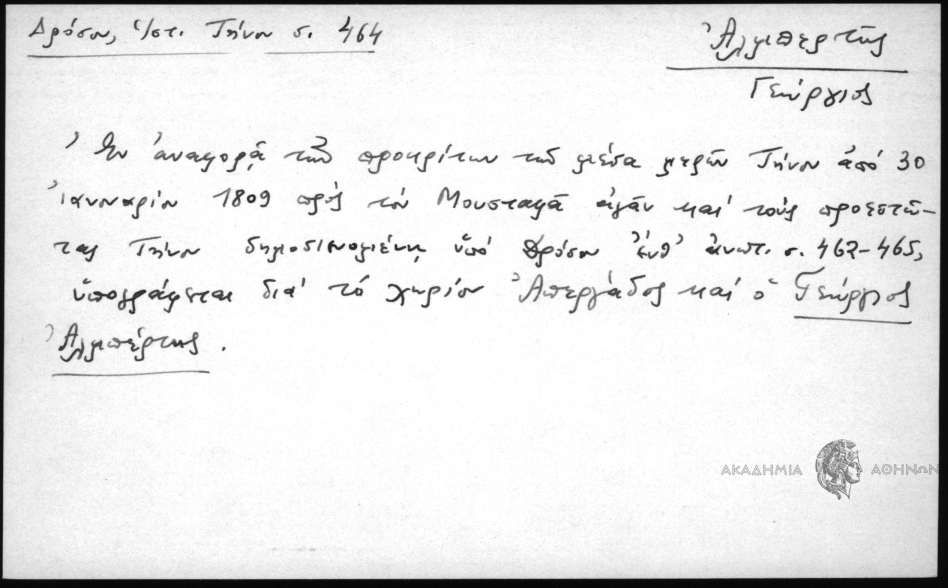 Δρόσου, Ἱστ. Τήνου σ. 464
Ἀλμπέρτης
Γεώργιος
Ἐν ἀναφορᾷ τῶν προκρίτων τῶν μέσα μερῶν Τήνου ἀπό 30
Ἰανουαρίου 1809 πρός τόν Μουσταφᾶ ἀγᾶν καί τούς προεστῶ-
τας Τήνου δημοσιευομένῃ ὑπό Δρόσου ἔνθ' ἀνωτ. σ. 462-465,
ὑπογράφεται διά τό χωρίον Ἀπεργάδος καί ὁ Γεώργιος
Ἀλμπέρτης.
ΑΚΑΔΗΜΙΑ ΑΘΗΝΩΝ